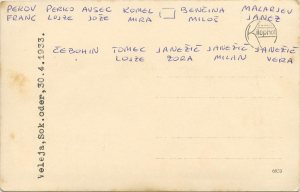 PEROV PERKO AVSEC KOMEL BENČINA MALARJEV
FRANC LOJZE JOŽE MIRA MILOŠ JANEZ
ČEBOHIN TOMEC JANEŽIČ JANEŽIČ JANEŽIČ
LOJZE ZORA MILAN VERA
Veleja,Sok.oder,30.4.1933.
6633